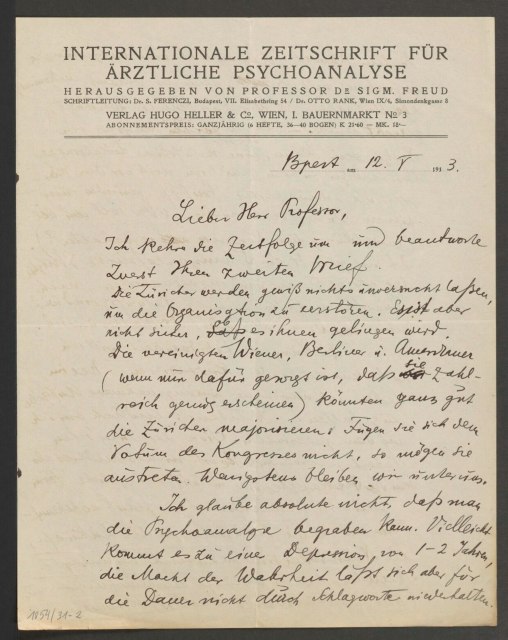 INTERNATIONALE ZEITSCHRIFT FÜR
ÄRZTLICHE PSYCHOANALYSE
HERAUSGEGEBEN VON PROFESSOR DR SIGM. FREUD
SCHRIFTLEITUNG: Dr. S. FERENCZI, Budapest, VII. Elisabethring 54 / Dr. OTTO RANK, Wien IX/4, Simondenkgasse 8
VERLAG HUGO HELLER & Co, WIEN, I. BAUERNMARKT No 3
ABONNEMENTSPREIS: GANZJÄHRIG (6 HEFTE, 36—40 BOGEN) K 21·60 = MK. 18·—
Bpest am 12. V 1913.
Lieber Herr Professor,
Ich kehre die Zeitfolge um und beantworte
Zuerst Ihren zweiten Brief.
Die Züricher werden gewiß nichts unversucht laßen,
um die Organisation zu zerstören. Es ist aber
nicht sicher, ob es ihnen gelingen wird.
Die vereinigten Wiener, Berliner u. Amerikaner
(wenn nur dafür gesorgt ist, daß sie zahl-
reich genug erscheinen) könnten ganz gut
die Züricher majorisieren: Fügen sie sich dem
Votum des Kongresses nicht, so mögen sie
austreten. Wenigstens bleiben wir unter uns.
Ich glaube absolute nicht, daß man
die Psychoanalyse begraben kann. Vielleicht
kommt es zu einer Depression von 1-2 Jahren,
die Macht der Wahrheit läßt sich aber für
die Dauer nicht durch Schlagworte niederhalten.
1054/31-2